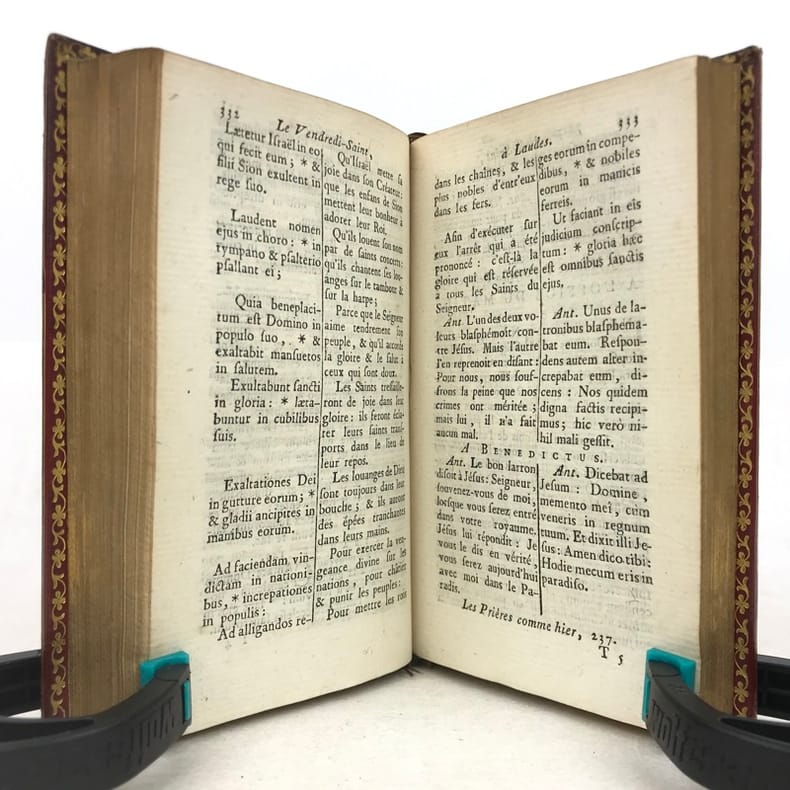 332
Le Vendredi-Saint,
Lætetur Iſraël in eo
qui fecit eum; * &
filii Sion exultent in
rege ſuo.
Laudent nomen
ejus in choro: * in
tympano & pſalterio
pſallant ei;
Quia beneplaci-
tum eſt Domino in
populo ſuo, * &
exaltabit manſuetos
in ſalutem.
Exultabunt ſancti
in gloria: * læta-
buntur in cubilibus
ſuis.
Exaltationes Dei
in gutture eorum; *
& gladii ancipites in
manibus eorum.
Ad faciendam vin-
dictam in nationi-
bus, * increpationes
in populis:
Ad alligandos re-
Qu'Iſraël mette ſa
joie dans ſon Créateur:
que les enfans de Sion
mettent leur bonheur à
adorer leur Roi.
Qu'ils louent ſon nom
par de ſaints concerts:
qu'ils chantent ſes lou-
anges ſur le tambour &
ſur la harpe;
Parce que le Seigneur
aime tendrement ſon
peuple, & qu'il accorde
la gloire & le ſalut à
ceux qui ſont doux.
Les Saints treſſaille-
ront de joie dans leur
gloire: ils feront écla-
ter leurs ſaints tranſ-
ports dans le lieu de
leur repos.
Les louanges de Dieu
ſont toujours dans leur
bouche; & ils auront
des épées tranchantes
dans leurs mains.
Pour exercer la ven-
geance divine ſur les
nations, pour châtier
& punir les peuples:
Pour mettre les rois
à Laudes.
333
dans les chaînes, & les
plus nobles d'entr'eux
dans les fers.
Afin d'exécuter ſur
eux l'arrêt qui a été
prononcé: c'eſt-là la
gloire qui eſt réſervée
à tous les Saints du
Seigneur.
Ant. L'un des deux vo-
leurs blaſphémoit con-
tre Jéſus. Mais l'autre
l'en reprenoit en diſant:
Pour nous, nous ſouf-
frons la peine que nos
crimes ont méritée;
mais lui, il n'a fait
aucun mal.
ges eorum in compe-
dibus, * & nobiles
eorum in manicis
ferreis.
Ut faciant in eis
judicium conſcrip-
tum: * gloria hæc
eſt omnibus ſanctis
ejus,
Ant. Unus de la-
tronibus blaſphema-
bat eum. Reſpon-
dens autem alter in-
crepabat eum, di-
cens: Nos quidem
digna factis recipi-
mus; hic verò ni-
hil mali geſſit.
A BENEDICTUS.
Ant. Le bon larron
diſoit à Jéſus: Seigneur,
ſouvenez-vous de moi,
lorſque vous ſerez entré
dans votre royaume.
Jéſus lui répondit: Je
vous le dis en vérité,
vous ſerez aujourd'hui
avec moi dans le Pa-
radis.
Ant. Dicebat ad
Jeſum: Domine,
memento meî, cùm
veneris in regnum
tuum. Et dixit illi Je-
ſus: Amen dico tibi:
Hodie mecum eris in
paradiſo.
Les Prières comme hier, 237.
T 5